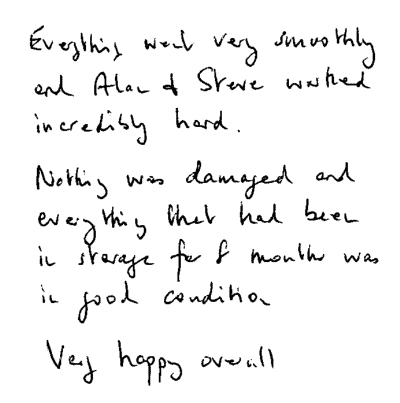 Everything went very smoothly
and Alan & Steve worked
incredibly hard.
Nothing was damaged and
everything that had been
in storage for 8 months was
in good condition
Very happy overall